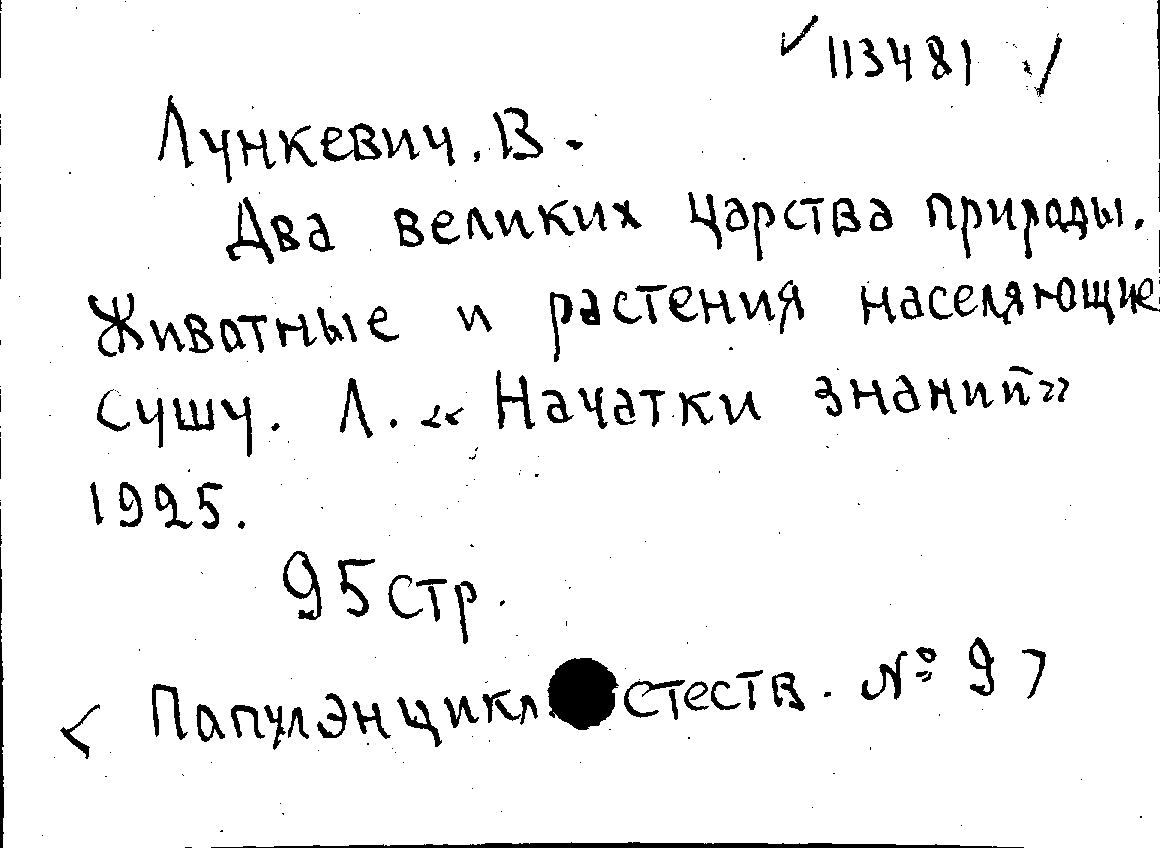 ✓ 113481 ✓
Лункевич. В.
Два великих царства природы.
Животные и растения населяющие
сушу. Л. «Начатки знаний»
1925.
95 стр.
< Папулэнцикл. стеств. № 9 >